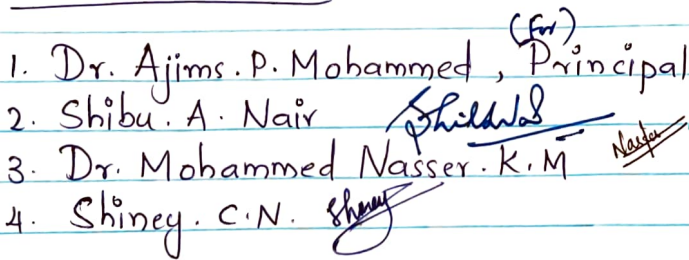 (For)
1. Dr. Ajims. P. Mohammed, Principal
2. Shibu. A. Nair
3. Dr. Mohammed Nasser. K. M
4. Shiney. C.N.